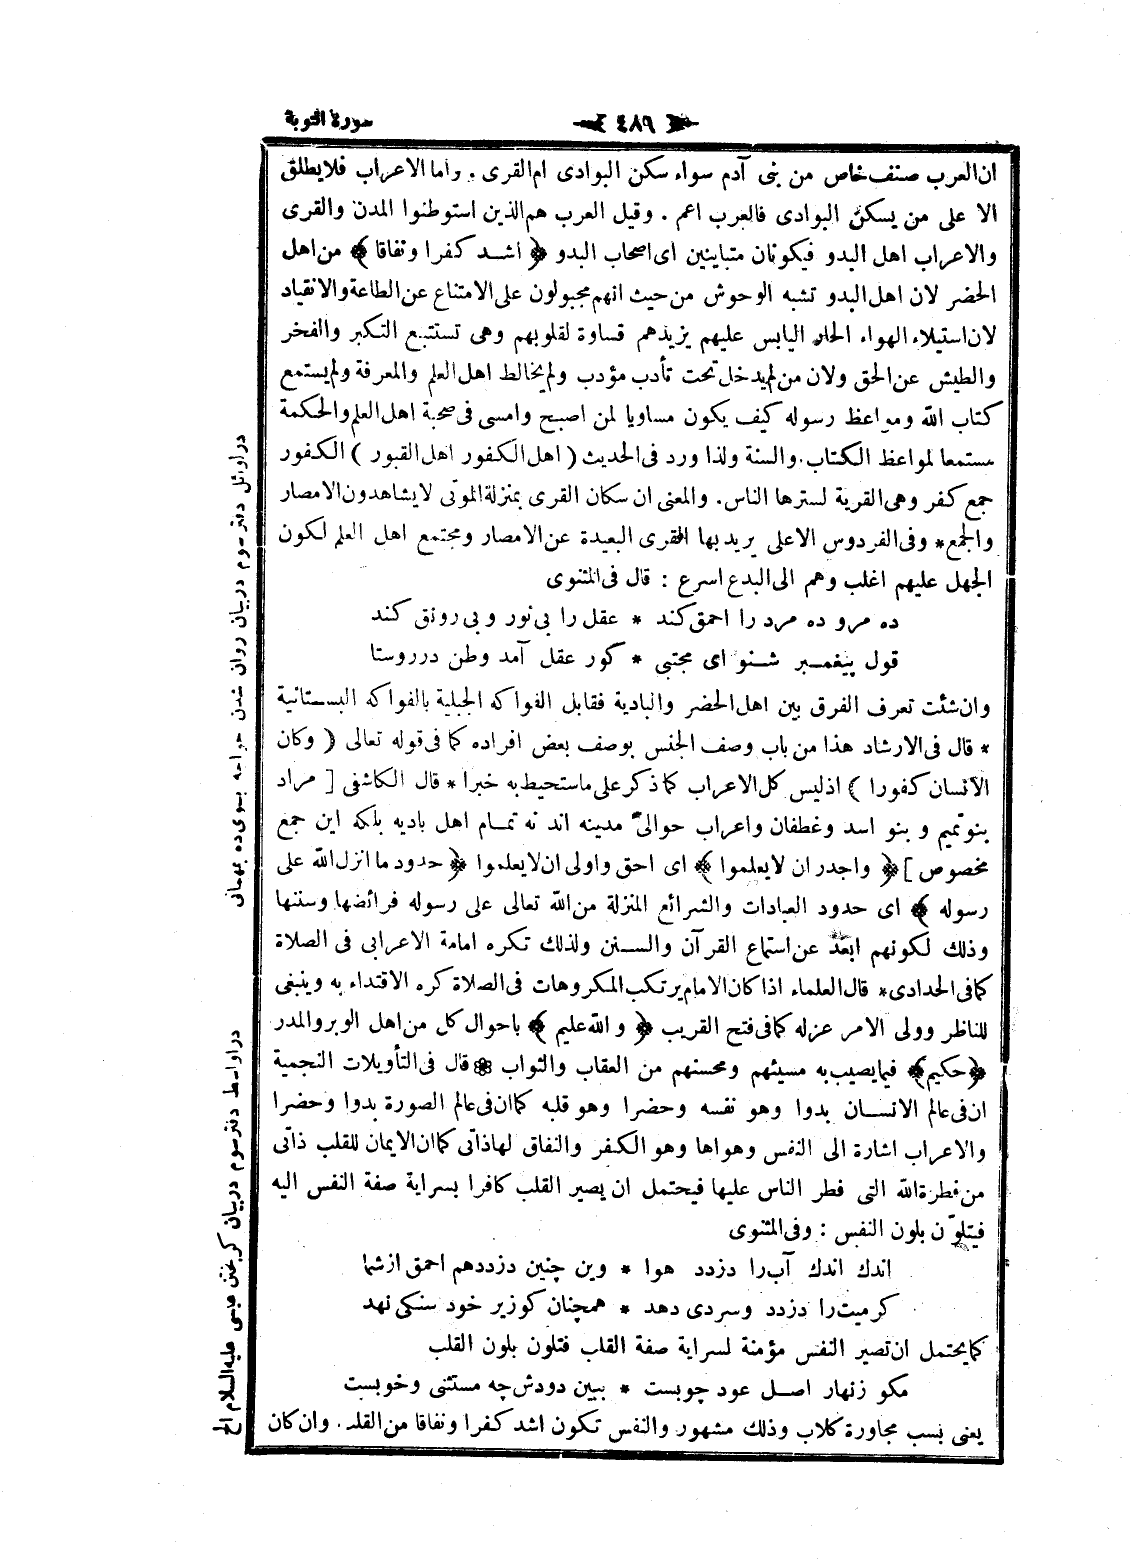 سورة التوبة
٤٨٩
ان العرب صنف خاص من بنى آدم سواء سكن البوادى ام القرى . واما الاعراب فلا يطلق
الا على من يسكن البوادى فالعرب اعم . وقيل العرب هم الذين استوطنوا المدن والقرى
والاعراب اهل البدو فيكونان متباينين اى اصحاب البدو ﴿ اشد كفرا ونفاقا ﴾ من اهل
الحضر لان اهل البدو تشبه الوحوش من حيث انهم مجبولون على الامتناع عن الطاعة والانقياد
لان استيلاء الهواء الحار اليابس عليهم يزيدهم قساوة لقلوبهم وهى تستتبع التكبر والفخر
والطيش عن الحق ولان من لم يدخل تحت تأدب مؤدب ولم يخالط اهل العلم والمعرفة ولم يستمع
كتاب الله ومواعظ رسوله كيف يكون مساويا لمن اصبح وامسى فى صحبة اهل العلم والحكمة
مستمعا لمواعظ الكتاب. والسنة ولذا ورد فى الحديث ( اهل الكفور اهل القبور ) الكفور
جمع كفر وهى القرية لسترها الناس. والمعنى ان سكان القرى بمنزلة الموتى لا يشاهدون الامصار
والجمع * وفى الفردوس الاعلى يريد بها القرى البعيدة عن الامصار ومجتمع اهل العلم لكون
الجهل عليهم اغلب وهم الى البدع اسرع : قال فى المثنوى
ده مرو ده مرد را احمق كند * عقل را بى نور و بى رونق كند
قول پيغمبر شنو اى مجتبى * كور عقل آمد وطن در روستا
وان شئت تعرف الفرق بين اهل الحضر والبادية فقابل الفواكه الجبلية بالفواكه البستانية
* قال فى الارشاد هذا من باب وصف الجنس بوصف بعض افراده كما فى قوله تعالى ( وكان
الانسان كفورا ) اذ ليس كل الاعراب كما ذكر على ما ستحيط به خبرا * قال الكاشفى [ مراد
بنو تميم و بنو اسد وغطفان واعراب حوالئ مدينه اند نه تمام اهل باديه بلكه اين جمع
مخصوص ] ﴿ واجدر ان لا يعلموا ﴾ اى احق واولى ان لا يعلموا ﴿ حدود ما انزل الله على
رسوله ﴾ اى حدود العبادات والشرائع المنزلة من الله تعالى على رسوله فرائضها وسننها
وذلك لكونهم ابعد عن استماع القرآن والسنن ولذلك تكره امامة الاعرابى فى الصلاة
كما فى الحدادى * قال العلماء اذا كان الامام يرتكب المكروهات فى الصلاة كره الاقتداء به وينبغى
للناظر وولى الامر عزله كما فى فتح القريب ﴿ والله عليم ﴾ باحوال كل من اهل الوبر والمدر
﴿ حكيم ﴾ فيما يصيب به مسيئهم ومحسنهم من العقاب والثواب ❁ قال فى التأويلات النجمية
ان فى عالم الانسان بدوا وهو نفسه وحضرا وهو قلبه كما ان فى عالم الصورة بدوا وحضرا
والاعراب اشارة الى النفس وهواها وهو الكفر والنفاق لها ذاتى كما ان الايمان للقلب ذاتى
من فطرة الله التى فطر الناس عليها فيحتمل ان يصير القلب كافرا بسراية صفة النفس اليه
فيتلوّن بلون النفس : وفى المثنوى
اندك اندك آب را دزدد هوا * وين چنين دزدد هم احمق از شما
كرميت را دزدد وسردى دهد * همچنان كو زير خود سنكى نهد
كما يحتمل ان تصير النفس مؤمنة لسراية صفة القلب فتلون بلون القلب
مكو زنهار اصل عود چوبست * ببين دودش چه مستثنى وخوبست
يعنى بسب مجاورة كلاب وذلك مشهور والنفس تكون اشد كفرا ونفاقا من القلد . وان كان
در اوائل دفتر سوم در بيان روان شدن خواجه بسوى ده بمهمانى
در اواسط دفتر سوم در بيان كريختن عيسى عليه السلام الخ